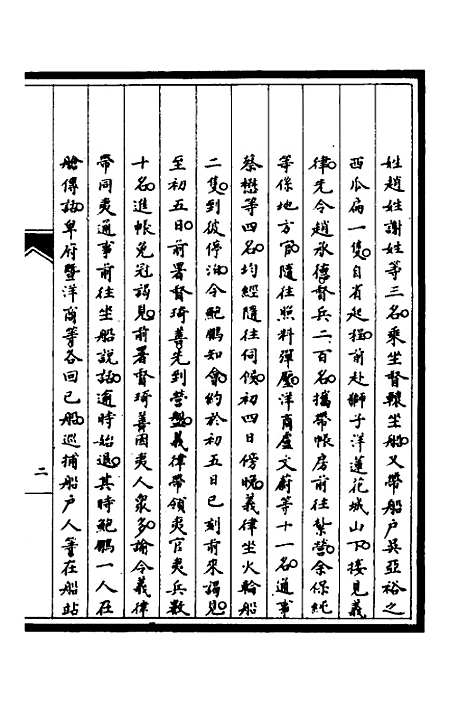 姓趙姓謝姓等三名乘坐督轅坐船又帶船戶吳亞裕之
西瓜扁一隻自省起椗前赴獅子洋蓮花城山下接見義
律先令趙承德督兵二百名攜帶帳房前往紮營余保純
等係地方官隨往照料彈壓洋商盧文蔚等十一名通事
蔡懋等四名均經隨往伺候初四日傍晚義律坐火輪船
二隻到彼停泊令鮑鵬知會約於初五日巳刻前來謁見
至初五日前署督琦善先到營盤義律帶領夷官夷兵數
十名進帳免冠謁見前署督琦善因夷人眾多諭令義律
帶同夷通事前往坐船說話逾時始退其時鮑鵬一人在
艙傳話卑府暨洋商等各回己船巡捕船戶人等在船站
二